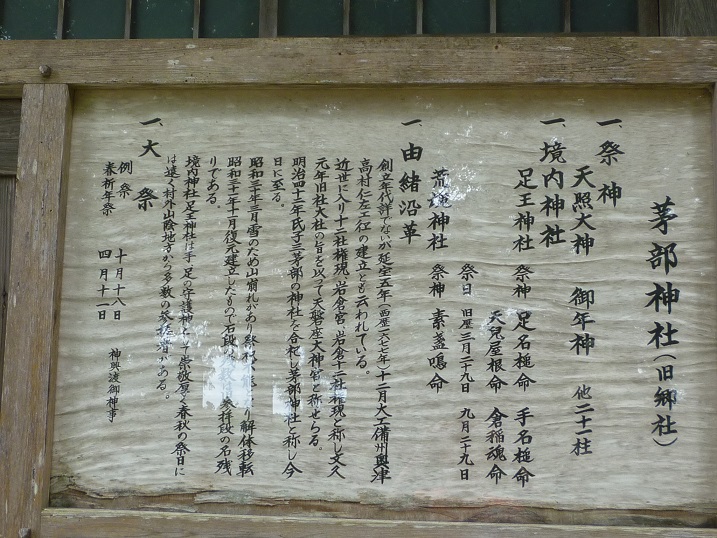 茅部神社（旧郷社）
一、祭神
天照大神 御年神 他二十一柱
一、境内神社
足王神社 祭神 足名槌命 手名槌命
天兒屋根命 倉稲魂命
祭日 旧歴三月二十九日 九月二十九日
荒神社 祭神 素盞鳴命
一、由緒沿革
創立年代詳でないが延宝五年（西歴一六七七年）十二月大工備州奥津
高村仁左エ江の建立とも云われている。
近世に入り十二社権現、岩倉宮、岩倉十二社権現と称し文久
元年旧社大社の旨を以って天磐座大神宮と称せらる。
明治四十二年氏子三茅部の神社を合祀し茅部神社と称し今
日に至る。
昭和三十年三月雪のため山崩れがあり 解体移転
昭和三十一年十一月復元建立したもので石段 参拝段の石残
りである。
境内神社足王神社は手、足の守護神として崇敬厚く春秋の祭日に
は遠く村外山陰地方から多数の参拝者がある。
一、大祭
例祭 十月十八日 神輿渡御神事
春祈年祭 四月十一日